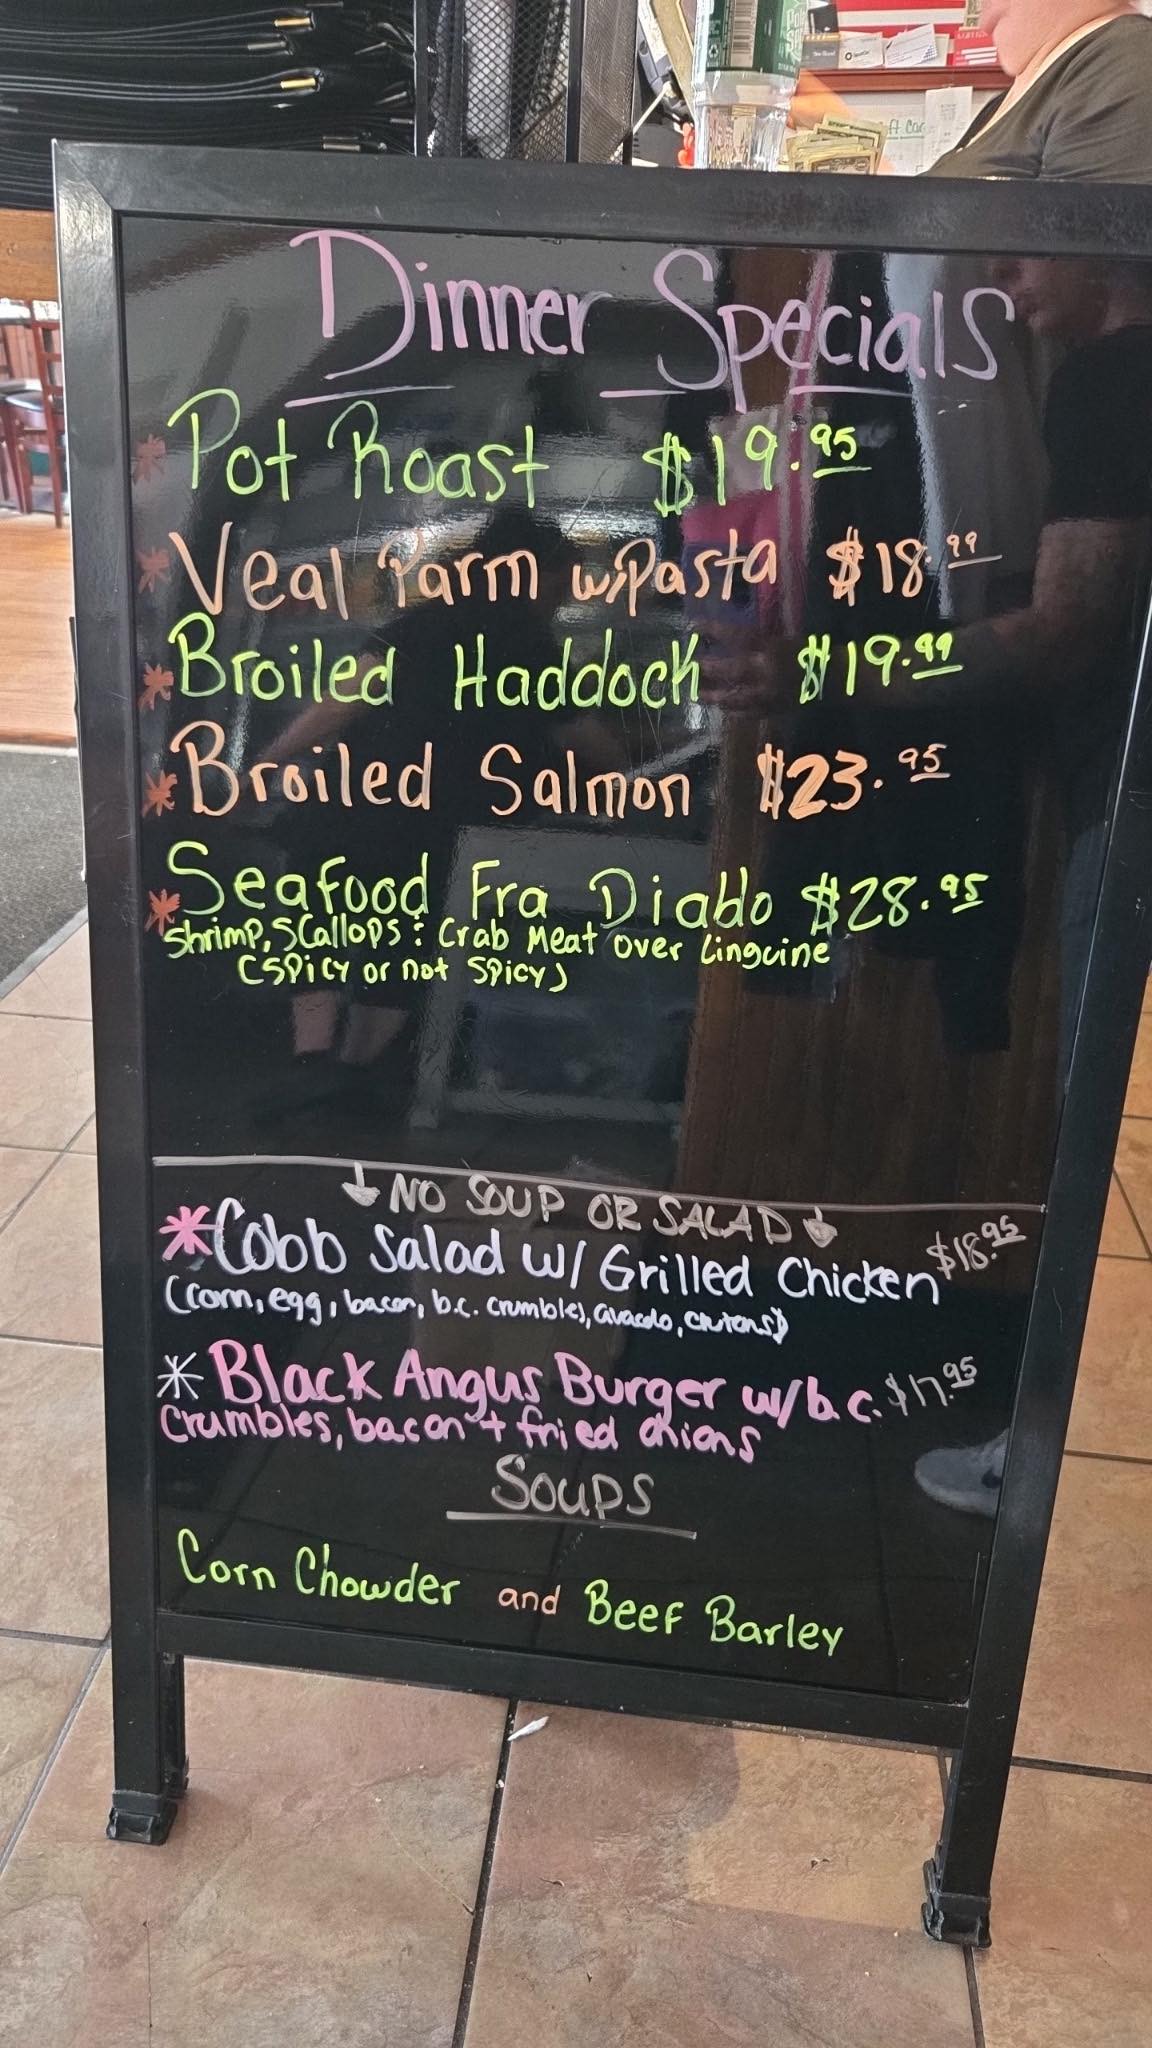 Dinner Specials
* Pot Roast $19.95
* Veal Parm w/Pasta $18.99
* Broiled Haddock $19.99
* Broiled Salmon $23.95
* Seafood Fra Diablo $28.95
Shrimp, Scallops : Crab Meat over Linguine
(Spicy or not Spicy)
↓ NO SOUP OR SALAD ↓
* Cobb Salad w/ Grilled Chicken $18.95
(corn, egg, bacon, b.c. crumbles, avacado, crutons)
* Black Angus Burger w/ b.c. $17.95
Crumbles, bacon + fried onions
Soups
Corn Chowder and Beef Barley